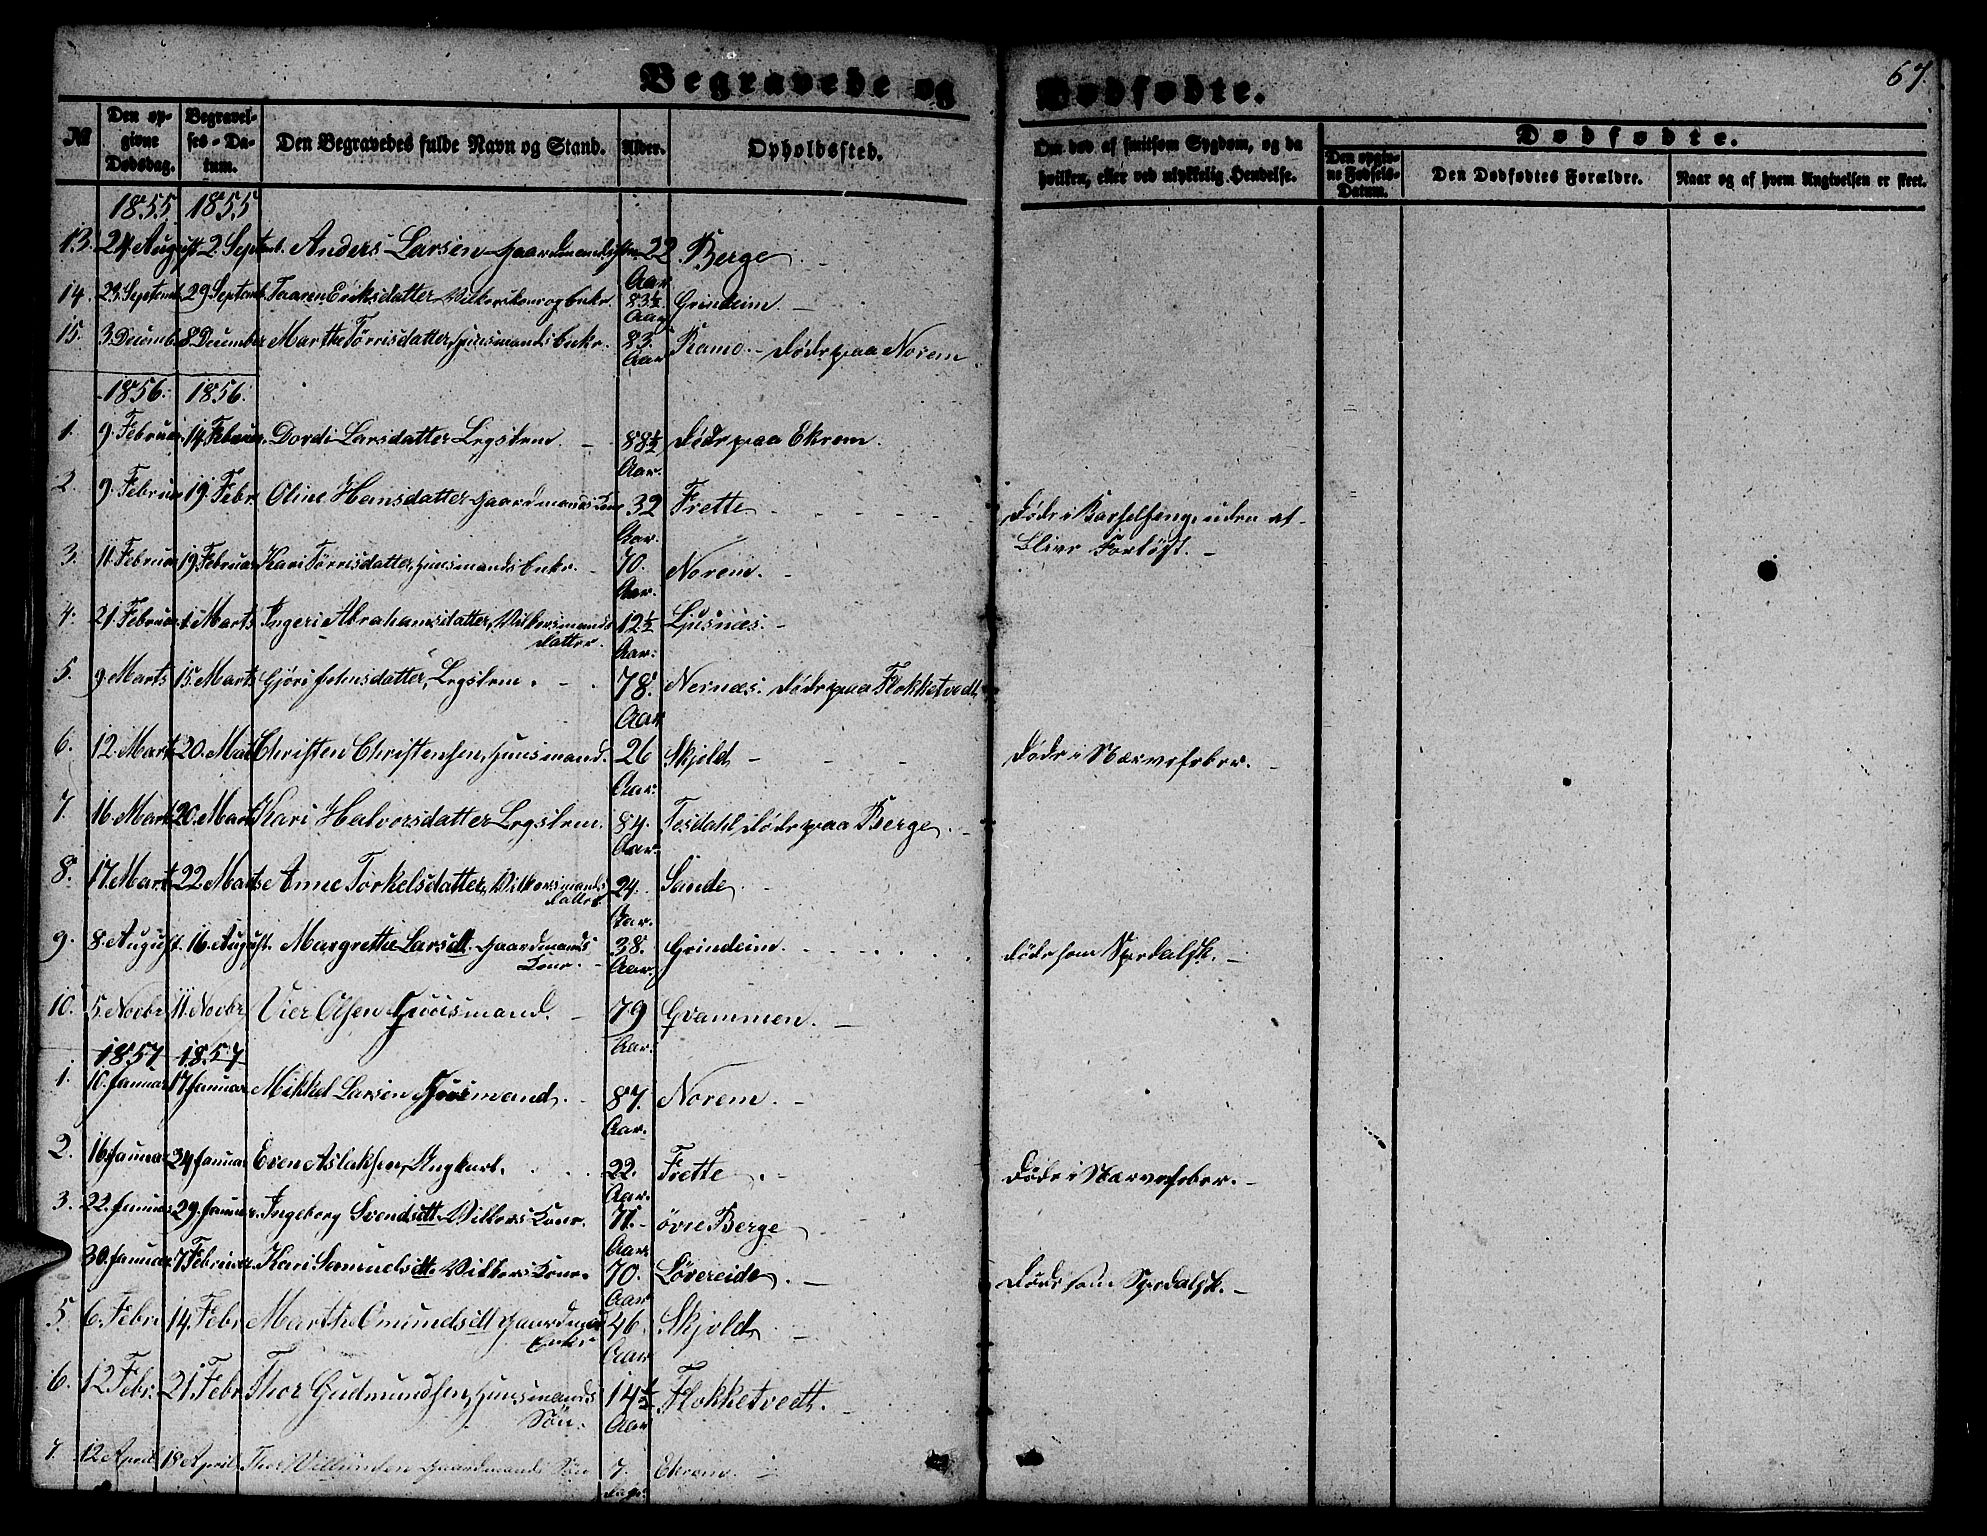 Begravede og Dødfødte.
67.
№ Den opgivne Dødsdag. Begravelses-Datum. Den Begravedes fulde Navn og Stand. Alder. Opholdssted. Om død af smitsom Sygdom, og da hvilken, eller ved ulykkelig Hendelse. Dødfødte. Den opgivne Fødsels-Datum. Den Dødfødtes Forældre. Naar og af hvem Angivelsen er skeet.
1855 1855
13. 24 August 2. Septemb. Anders Larsen Gaardmand 22 Aar Berge.
14. 23. Septemb. 29 Septemb. Taaren Eriksdatter 83½ Aar Grindeim.
15. 3. Decemb. 8. December Marthe Tørrisdatter, Huusmands Enke. 83. Aar Ramo. døde paa Norem
1856. 1856.
1. 9. Februar 14. Februar. Dordi Larsdatter Legslem. 88½ Aar. døde paa Ekrem.
2. 9. Februar 19. Febr. Oline Hansdatter Gaardmands Kone 32 Aar. Frette. døde i Barselseng, uden at
blive Forløst.
3. 11. Februar 19. Februar Kari Tørrisdatter, Huusmands Enke. 70. Aar. Norem.
4. 21. Februar 1 Marts Ingeri Abrahamsdatter,
datter. 12½ Aar. Ljusnæs.
5. 9. Marts 15. Marts Gjøri Johnsdatter, Legslem. 78. Aar Nernæs. døde paa Flokketvedt.
6. 12. Marts 20. Mar Christen Christensen, Huusmand. 26 Aar. Skjold døde i Nervefeber.
7. 16. Mart 20. Mart Kari Halvorsdatter Legslem. 84. Aar. Tesdahl, døde paa Berge.
8. 17. Mart 22. Marts Anne Torkelsdatter,
datter 24. Aar. Sande.
9. 8. August. 16. August. Margrethe Larsdt. Gaardmands
Kone. 38. Aar. Grindeim. døde som Spedalsk.
10. 5. Novbr 11. Novbr Vier Olsen Huusmand. 79 Aar. Qvammen.
1857 1857
1. 10. Januar 17 Januar Mikkel Larsen Huusmand. 87. Aar. Norem.
2. 16. Januar 24 Januar Even Aslaksen, Ungkarl. 22. Aar. Frette. døde i Nervefeber.
3. 22. Januar 29. Januar. Ingeborg Svendsdt. Kone. 71. Aar øvre Berge
30. Januar 7 Februar. Kari Samuelsdt. Kone. 70. Aar Løvereide. døde som Spedalsk.
5. 6. Febr 14. Febr Marthe Omundsdt Gaardmands
Enke 46. Aar Skjold
6. 12 Febr. 21. Febr Thor Gudmundsen, Huusmands
Søn. 14½ Aar Flokketvedt.
7. 12 April 18 April Thor Gaardmands Søn 7. dage Ekrem.